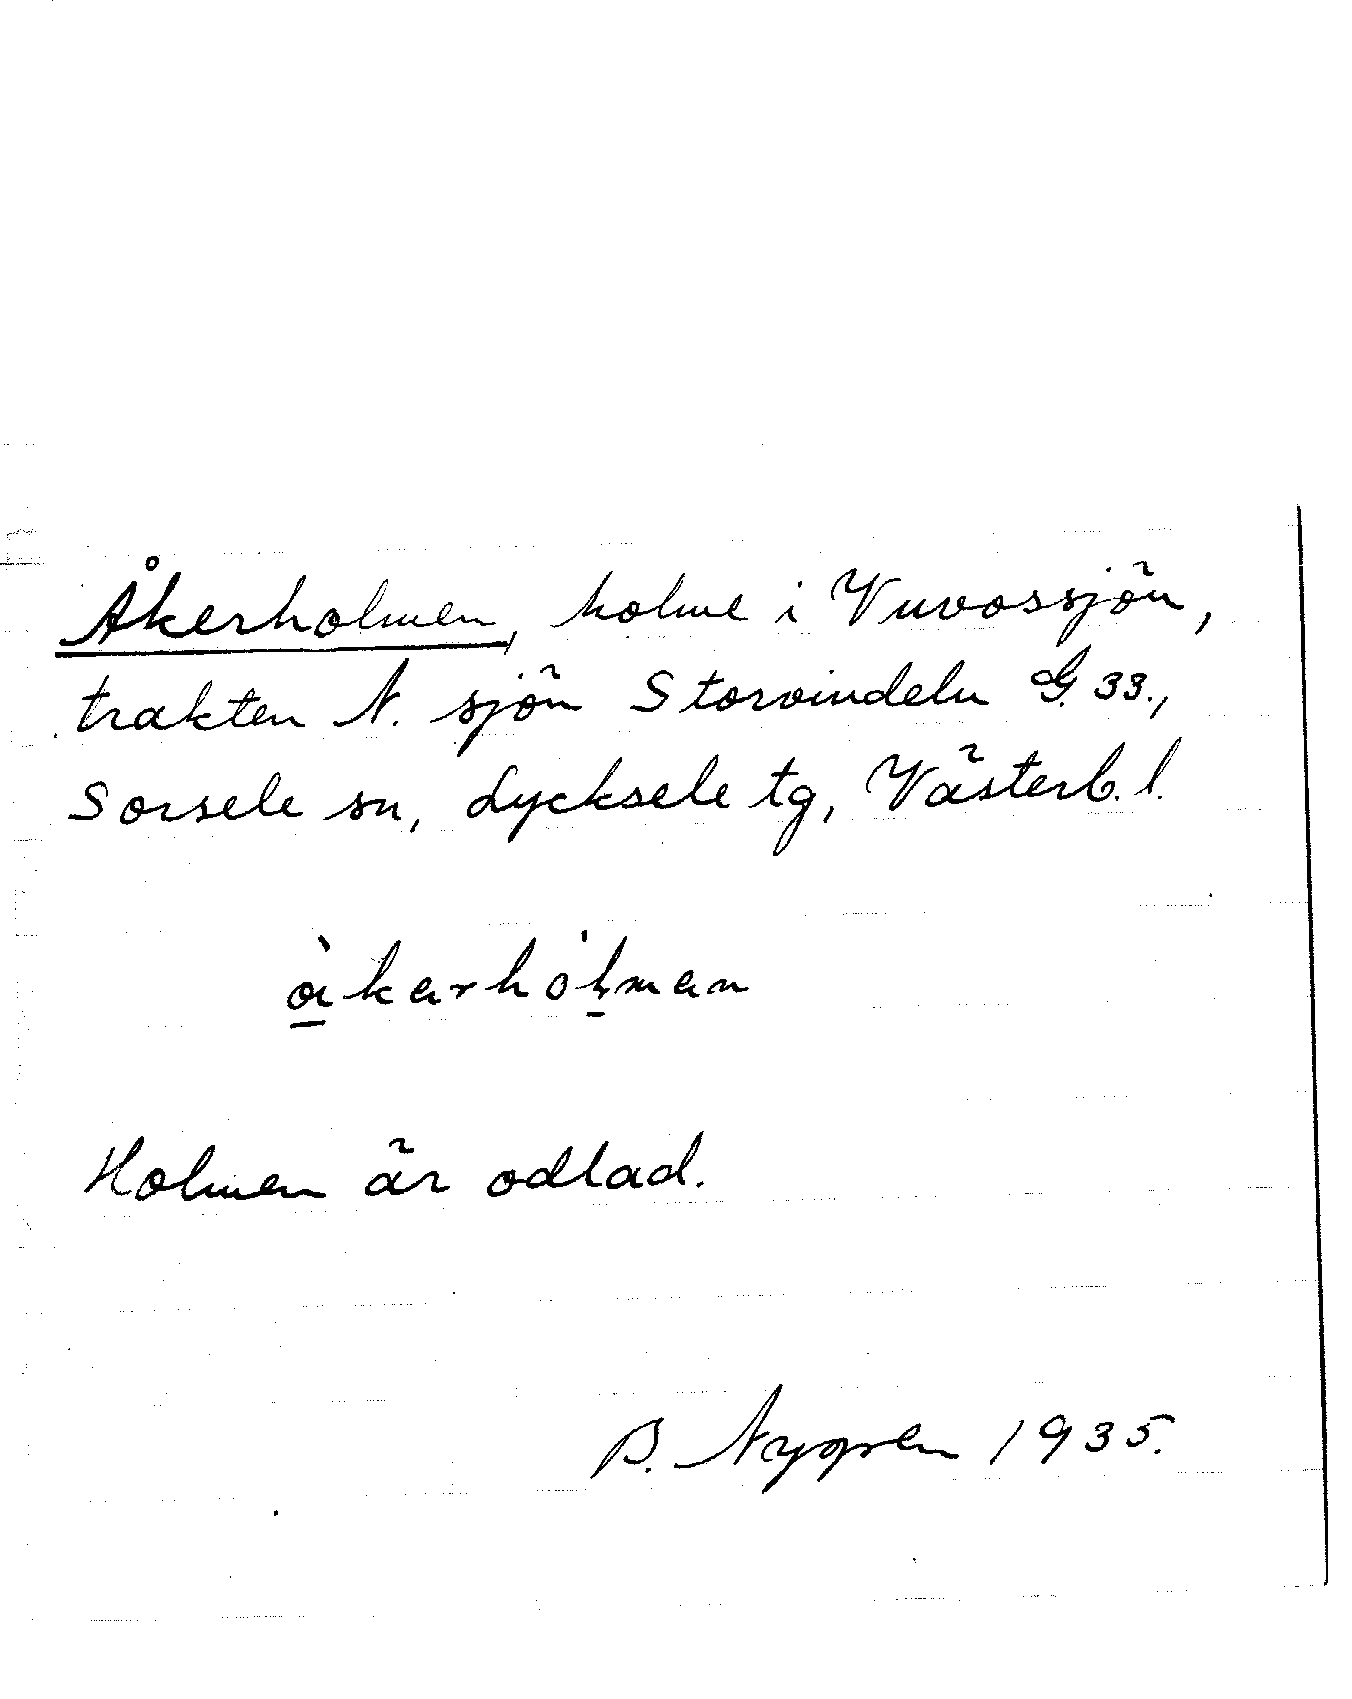 Åkerholmen, holme i Vuvossjön,
trakten N. sjön Storvindeln G 33.,
Sorsele sn, Lycksele tg, Västerb. l.
Holmen är odlad.
B. Nygren 1935.